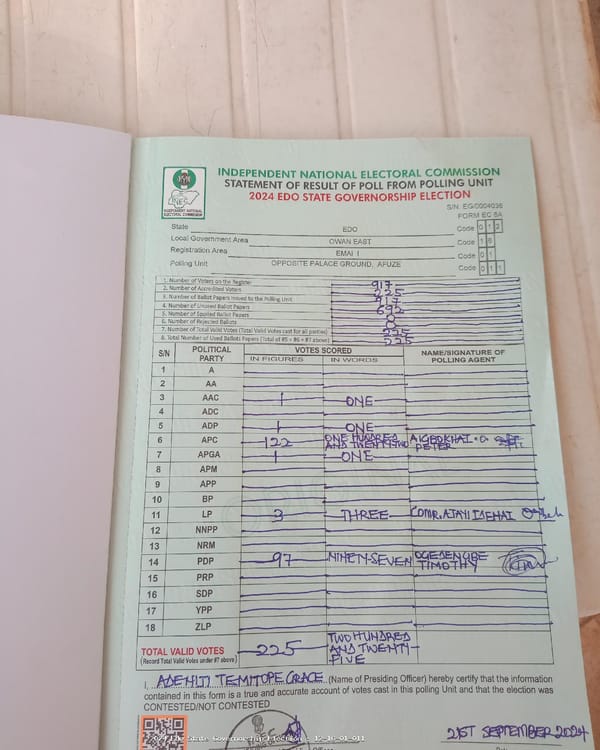 INDEPENDENT NATIONAL ELECTORAL COMMISSION
STATEMENT OF RESULT OF POLL FROM POLLING UNIT
2024 EDO STATE GOVERNORSHIP ELECTION
INEC
INDEPENDENT NATIONAL
ELECTORAL COMMISSION
S/N. EG/0004036
FORM EC 8A
State EDO Code 0 1 2
Local Government Area OWAN EAST Code 1 6
Registration Area EMAI I Code 0 1
Polling Unit OPPOSITE PALACE GROUND, AFUZE Code 0 1 1
1. Number of Voters on the Register 917
2. Number of Accredited Voters 225
3. Number of Ballot Papers Issued to the Polling Unit 917
4. Number of Unused Ballot Papers 692
5. Number of Spoiled Ballot Papers 0
6. Number of Rejected Ballots 0
7. Number of Total Valid Votes (Total Valid Votes cast for all parties) 225
8. Total Number of Used Ballots Papers (Total of #5 + #6 + #7 above) 225
S/N POLITICAL PARTY VOTES SCORED NAME/SIGNATURE OF POLLING AGENT
IN FIGURES IN WORDS
1 A
2 AA
3 AAC 1 ONE
4 ADC
5 ADP 1 ONE
6 APC 122 ONE HUNDRED AND TWENTY TWO AIGBOKHAI. O PETER
7 APGA 1 ONE
8 APM
9 APP
10 BP
11 LP 3 THREE COMR. AJAYI
12 NNPP
13 NRM
14 PDP 97 NINETY-SEVEN OGEDENGBE TIMOTHY
15 PRP
16 SDP
17 YPP
18 ZLP
TOTAL VALID VOTES 225 TWO HUNDRED AND TWENTY-FIVE
(Record Total Valid Votes under #7 above)
I, ADENITI TEMITOPE GRACE (Name of Presiding Officer) hereby certify that the information
contained in this form is a true and accurate account of votes cast in this polling Unit and that the election was
CONTESTED/NOT CONTESTED
21ST SEPTEMBER 2024
2024 Edo State Governorship Election - 12-16-01-011